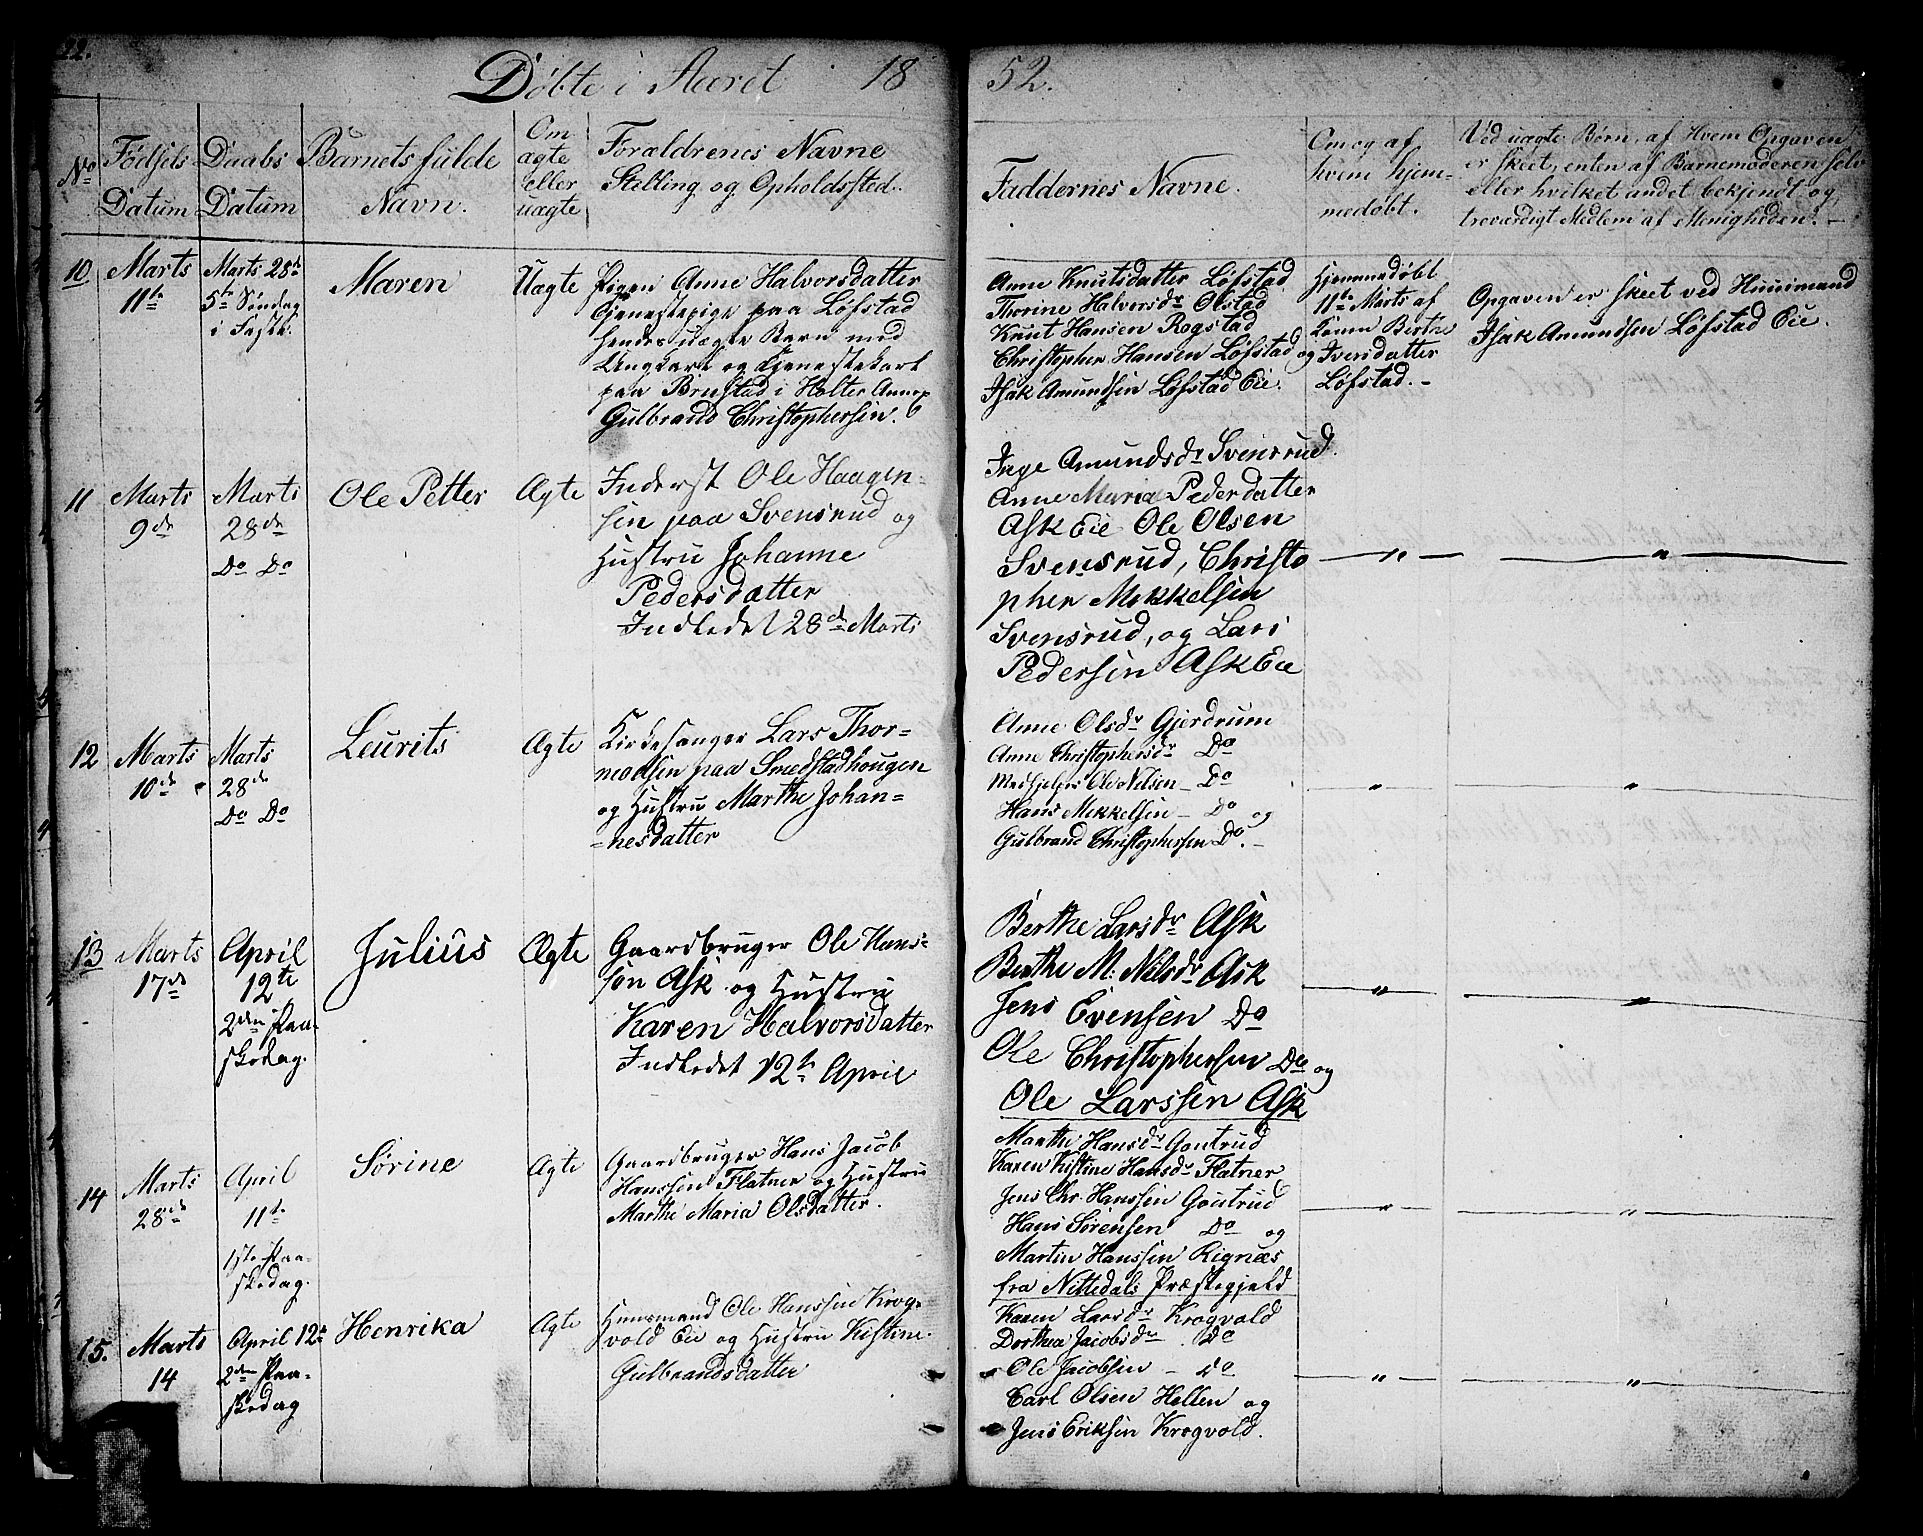 22.
Døbte i Aaret 18 52.
No
Fødsels
Datum
Daabs
Datum
Barnets fulde
Navn.
Om
ægte
eller
uægte
Forældrenes Navne
Stilling og Opholdssted.
Faddernes Navne.
Om og af
hvem hjem-
medøbt.
Ved uægte Børn, af Hvem Opgaven
er skeet, enten af Barnemoderen selv
eller hvilket andet bekjendt og
troværdigt Medlem af Menigheden. -
10
Marts
11te
Marts 28de
5te Søndag
i Faste.
Maren
Uægte
Pigen Anne Halvorsdatter
Tjenestepige paa Løfstad
hendes uægte Barn med
Ungkarl og Tjenestekarl
paa Brustad i Holter Annex
Gulbrand Christophersen.
Anne Knutsdatter Løfstad
Thorine Halversdr Olstad
Knut Hansen Rogstad
Christopher Hansen Løfstad og
Isak Amundsen Løfstad Eie.
Hjemmedøbt
11te Marts af
Birthe
Iversdatter
Løfstad. -
Opgaven er skeet ved Huusmand
Isak Amundsen Løfstad Eie.
11
Marts
9de
Marts
28de
Do Do
Ole Petter
Ægte
Inderst Ole Haagen-
sen paa Svensrud og
Hustru Johanne
Pedersdatter
Indledet 28de Marts
Inge Amundsdr Svensrud.
Anne Maria Pedersdatter
Ask Eie Ole Olsen
Svensrud, Christo
pher Mekkelsen
Svensrud, og Lars
Pedersen Ask Eie
12
Marts
10de
Marts
28de
Do Do
Leurits
Ægte
Kirkesanger Lars Thor-
modsen paa Smedstadhougen
og Hustru Marthe Johan-
-nesdatter
Anne Olsdr Gjerdrum
Anne Christophersdr Do
Medhjelper Ole Nilsen - Do
Hans Mekkelsen - Do og
Gulbrand Christophersen Do. -
13
Marts
17de
April
12te
2den Paa-
skedag.
Julius
Ægte
Gaardbruger Ole Hans-
søn Ask og Hustru
Karen Halvorsdatter
Indledet 12te April
Berthe Larsdr Ask
Berthe M: Nilsdr Ask
Jens Evensen Do
Ole Christophersen Do og
Ole Larssen Ask
14
Marts
28de
April
11te
1ste Paa-
skedag.
Sørine
Ægte
Gaardbruger Hans Jacob
Hanssen Flatner og Hustru
Marthe Maria Olsdatter.
Marthe Hansdr Goutrud
Karen Kistine Hansdr Flatner
Jens Chr. Hanssen Goutrud
Hans Sørensen Do og
Martin Hanssen Rignæs
fra Nittedals Præstegjeld
15.
Marts
14
April 12te
2den Paa-
skedag
Henrika
Ægte
Huusmand Ole Hanssen Krog-
vold Eie og Hustru Kistine
Gulbrandsdatter
Karen Larsdr Krogvold
Dorthea Jacobsdr Do
Ole Jacobsen - Do
Carl Olsen Hellen og
Jens Eriksen Krogvold.